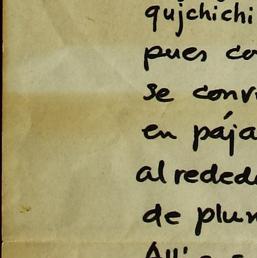 qujchichi
pues co
se conv
en pája
alrededo
de plum
Allí